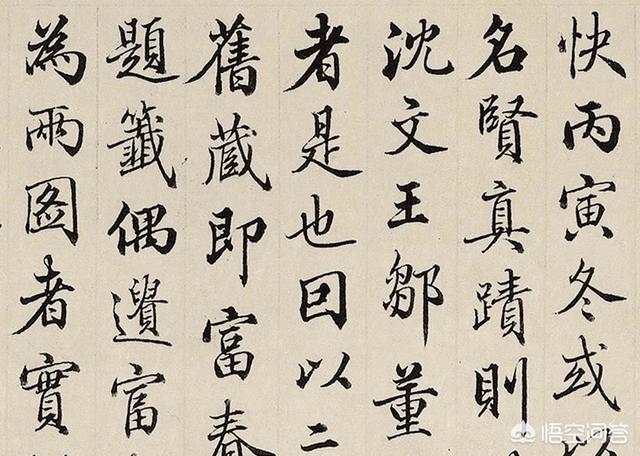 快丙寅冬或
名賢真蹟則
沈文王鄒董
者是也回以二
舊藏即富春
題籤偶遺富
為兩圖者實
悟空问答